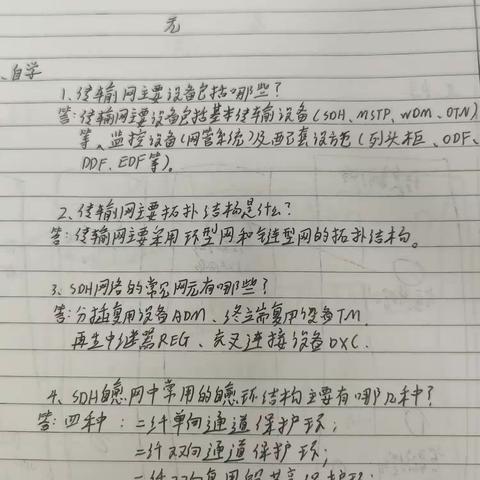 无
、自学
1、传输网主要设备包括哪些?
答:传输网主要设备包括基本传输设备(SDH、MSTP、WDM、OTN)
等、监控设备(网管系统)及配套设施(列头柜、ODF、
DDF、EDF等)。
2、传输网主要拓扑结构是什么?
答:传输网主要采用环型网和链型网的拓扑结构。
3、SDH网络的常见网元有哪些?
答:分插复用设备ADM、终端复用设备TM、
再生中继器REG、交叉连接设备DXC.
4、SDH自愈网中常用的自愈环结构主要有哪几种?
答:四种:二纤单向通道保护环;
二纤双向通道保护环;
二纤双向复用段共享保护环;